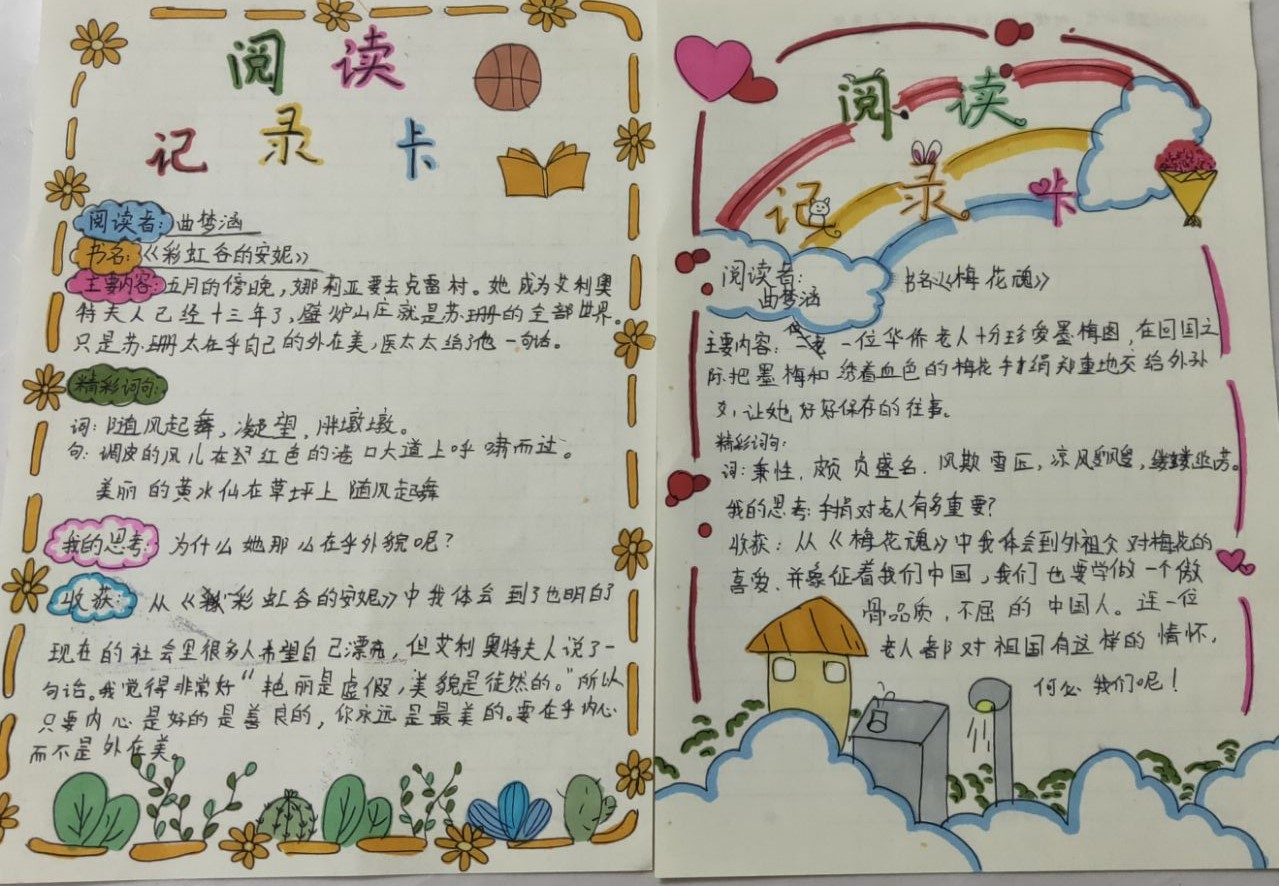 阅读
记录卡
阅读者:曲梦涵
书名:《彩虹谷的安妮》
主要内容:五月的傍晚,娜莉亚要去克雷村。她成为艾利奥
特夫人已经十三年了,壁炉山庄就是苏珊的全部世界。
只是苏珊太在乎自己的外在美,医太太给了她一句话。
精彩词句:
词:随风起舞,凝望,胖墩墩。
句:调皮的风儿在红色的港口大道上呼啸而过。
美丽的黄水仙在草坪上随风起舞
我的思考:为什么她那么在乎外貌呢?
收获:从《彩虹谷的安妮》中我体会到了也明白了
现在的社会里很多人希望自己漂亮,但艾利奥特夫人说了一
句话。我觉得非常好“艳丽是虚假,美貌是徒然的。”所以
只要内心是好的是善良的,你永远是最美的。要在乎内心
而不是外在美。
阅读
记录卡
阅读者:
曲梦涵
书名:《梅花魂》
主要内容:一位华侨老人十分珍爱墨梅图,在回国之
际把墨梅和绣着血色的梅花手绢郑重地交给外孙
女,让她好好保存的往事。
精彩词句:
词:秉性,颇负盛名,风欺雪压,凉飕飕,缕缕幽芳。
我的思考:手捐对老人有多重要?
收获:从《梅花魂》中我体会到外祖父对梅花的
喜爱、并象征着我们中国,我们也要学做一个傲
骨品质,不屈的中国人。连一位
老人都对祖国有这样的情怀,
何么我们呢!